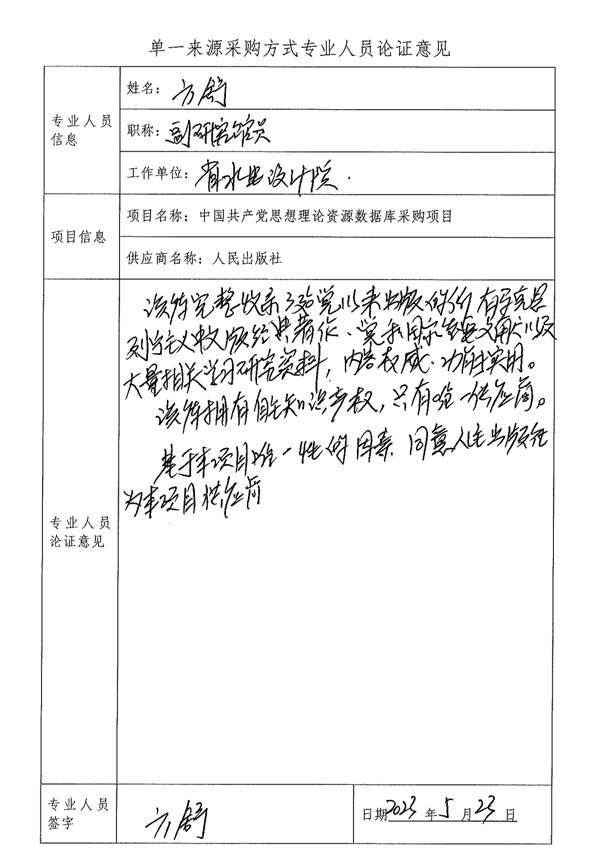 单一来源采购方式专业人员论证意见
专业人员信息
姓名：方舒
职称：副研究馆员
工作单位：省水电设计院.
项目信息
项目名称：中国共产党思想理论资源数据库采购项目
供应商名称：人民出版社
专业人员论证意见
该库完整收录了建党以来出版的所有马克思
列宁主义中文版经典著作、党和国家重要文献以及
大量相关学习研究资料，内容权威、功能实用。
该库拥有自主知识产权，只有唯一供应商。
基于本项目唯一性的因素 同意人民出版社
为本项目供应商
专业人员签字
方舒
日期2023年5月23日